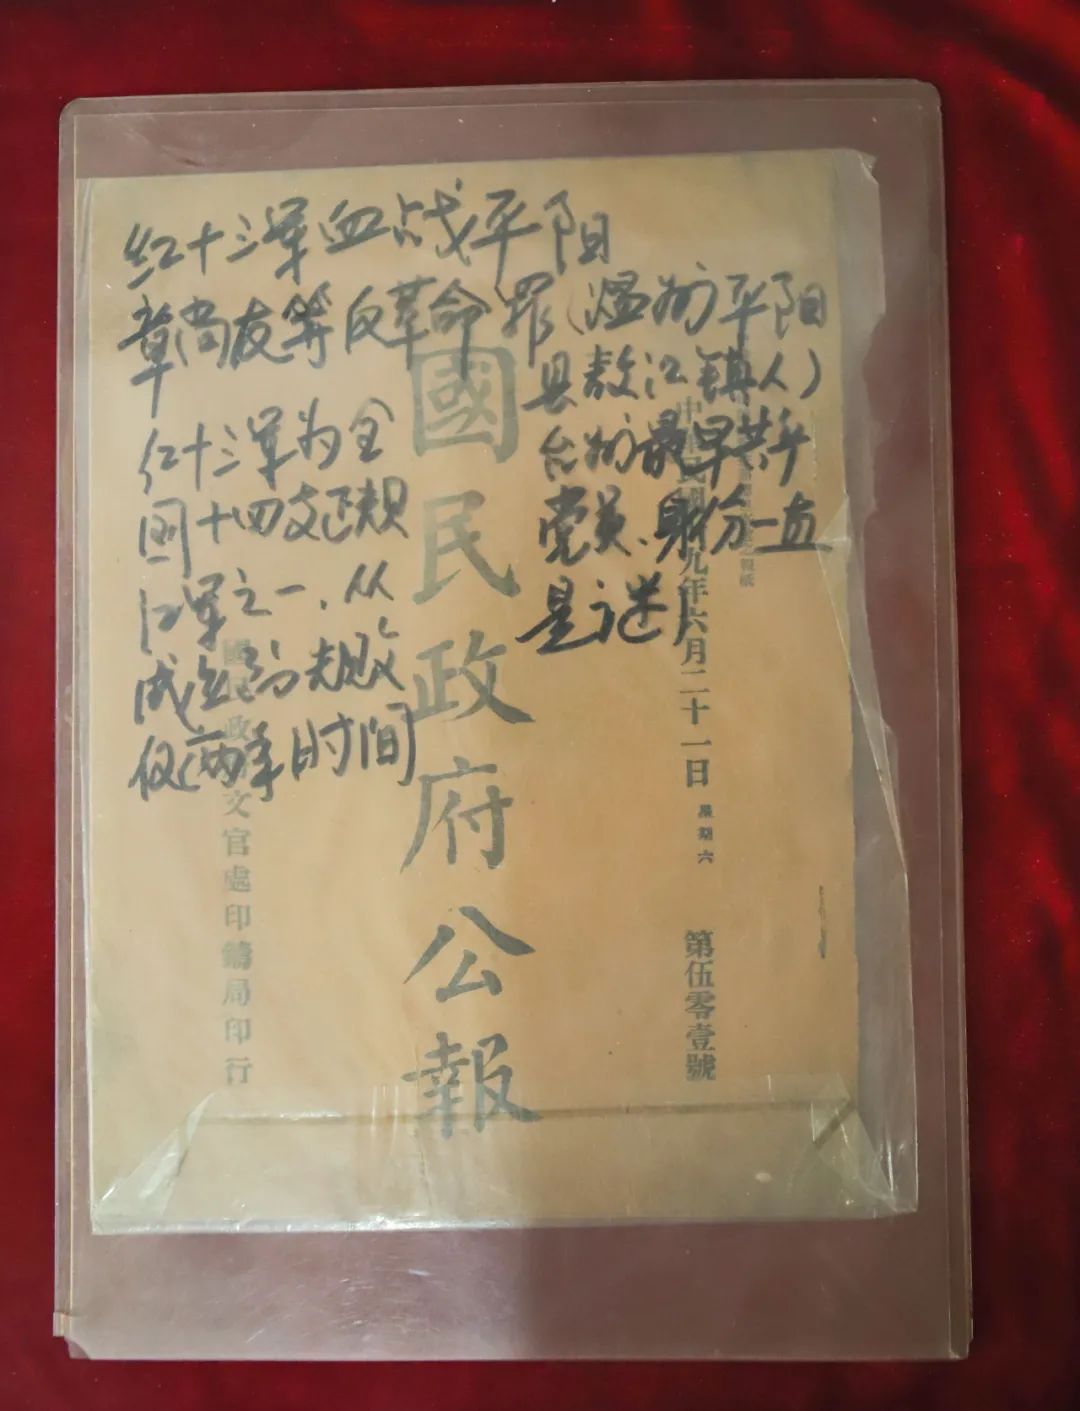 红十三军血战平阳
章尚友等反革命罪(温州平阳
县敖江镇人)
台州最早共产
党员、身份一直
是谜
红十三军为全
国十四支正规
红军之一,从
成立到失败
仅两年时间
中華民國九年六月二十一日 星期六
第伍零壹號
國民政府公報
國民政文官處印鑄局印行